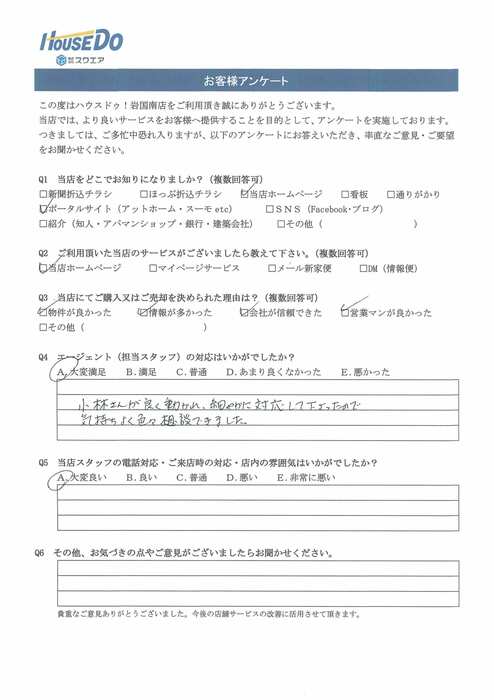 HOUSEDO
株式会社スウエア
お客様アンケート
この度はハウスドゥ!岩国南店をご利用頂き誠にありがとうございます。
当店では、より良いサービスをお客様へ提供することを目的として、アンケートを実施しております。
つきましては、ご多忙中恐れ入りますが、以下のアンケートにお答えいただき、率直なご意見・ご要望
をお聞かせください。
Q1 当店をどこでお知りになりましたか?(複数回答可)
□新聞折込チラシ □ほっぷ折込チラシ □当店ホームページ □看板 □通りがかり
□ポータルサイト(アットホーム・スーモ etc) □SNS(Facebook・ブログ)
□紹介(知人・アパマンショップ・銀行・建築会社) □その他( )
Q2 ご利用頂いた当店のサービスがございましたら教えて下さい。(複数回答可)
□当店ホームページ □マイページサービス □メール新家便 □DM(情報便)
Q3 当店にてご購入又はご売却を決められた理由は?(複数回答可)
□物件が良かった □情報が多かった □会社が信頼できた □営業マンが良かった
□その他( )
Q4 エージェント(担当スタッフ)の対応はいかがでしたか?
A.大変満足 B.満足 C.普通 D.あまり良くなかった E.悪かった
小林さんが良く動かれ、細やかに対応して下さったので
気持ちよく色々相談できました。
Q5 当店スタッフの電話対応・ご来店時の対応・店内の雰囲気はいかがでしたか?
A.大変良い B.良い C.普通 D.悪い E.非常に悪い
Q6 その他、お気づきの点やご意見がございましたらお聞かせください。
貴重なご意見ありがとうございました。今後の店舗サービスの改善に活用させて頂きます。